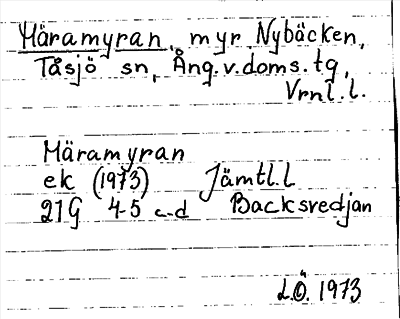 Häramyran, myr, Nybäcken,
Tåsjö sn, Ång.v.doms.tg,
Vrnl.l.
Häramyran
ek (1973) Jämtl.L
21G 4-5 c-d Backsvedjan
L.Ö. 1973